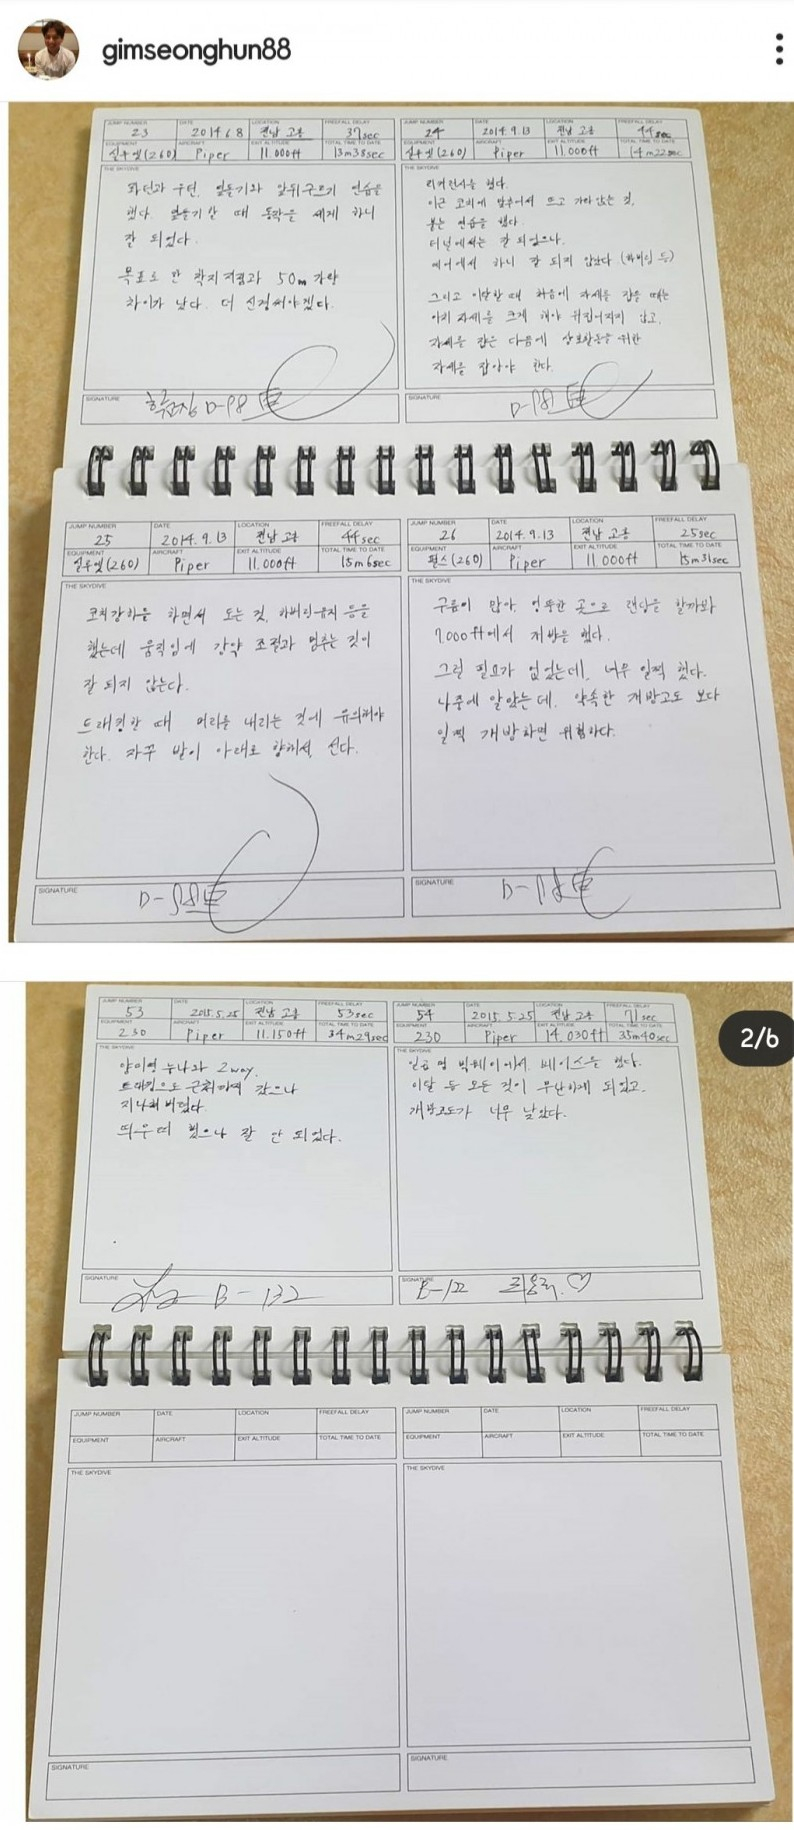 gimseonghun88
JUMP NUMBER DATE LOCATION FREEFALL DELAY
23 2014.6.8 전남 고흥 37sec
EQUIPMENT AIRCRAFT EXIT ALTITUDE TOTAL TIME TO DATE
실루엣(260) Piper 11.000ft 13m38sec
THE SKYDIVE
좌턴과 우턴, 옆돌기와 앞뒤구르기 연습을
했다. 옆돌기할 때 동작을 세게 하니
잘 되었다.
목표로 한 착지지점과 50m 가량
차이가 났다. 더 신경써야겠다.
SIGNATURE
D-98
JUMP NUMBER DATE LOCATION FREEFALL DELAY
24 2014.9.13 전남 고흥 44sec
EQUIPMENT AIRCRAFT EXIT ALTITUDE TOTAL TIME TO DATE
실루엣(260) Piper 11.000ft 14m22sec
THE SKYDIVE
리커런시를 했다.
코치에 맞추어서 뜨고 가라앉는 것,
붙는 연습을 했다.
터널에서는 잘 되었으나,
에어에서 하니 잘 되지 않았다 (하버링 등)
그리고 이탈할 때 처음에 자세를 잡을 때는
아치 자세를 크게 해야 뒤집어지지 않고,
자세를 잡은 다음에 상호활동을 위한
자세를 잡아야 한다.
SIGNATURE
D-98
JUMP NUMBER DATE LOCATION FREEFALL DELAY
25 2014.9.13 전남 고흥 44sec
EQUIPMENT AIRCRAFT EXIT ALTITUDE TOTAL TIME TO DATE
실루엣(260) Piper 11.000ft 15m6sec
THE SKYDIVE
코치강하를 하면서 도는 것, 하버링유지 등을
했는데 움직임에 강약 조절과 멈추는 것이
잘 되지 않는다.
트래킹할 때 머리를 내리는 것에 유의해야
한다. 자꾸 발이 아래로 향해서, 선다.
SIGNATURE
D-98
JUMP NUMBER DATE LOCATION FREEFALL DELAY
26 2014.9.13 전남 고흥 25sec
EQUIPMENT AIRCRAFT EXIT ALTITUDE TOTAL TIME TO DATE
펄스(260) Piper 11.000ft 15m31sec
THE SKYDIVE
구름이 많아, 엉뚱한 곳으로 랜딩을 할까봐
7.000ft에서 개방을 했다.
그럴 필요가 없었는데, 너무 일찍 했다.
나중에 알았는데, 약속한 개방고도 보다
일찍 개방하면 위험하다.
SIGNATURE
D-98
2/6
JUMP NUMBER DATE LOCATION FREEFALL DELAY
53 2015.5.25 전남 고흥 53sec
EQUIPMENT AIRCRAFT EXIT ALTITUDE TOTAL TIME TO DATE
230 Piper 11.150ft 34m29sec
THE SKYDIVE
누나와 2way,
트래킹으로 근처까지 갔으나
지나쳐 버렸다.
했으나 잘 안 되었다.
SIGNATURE
B-132
JUMP NUMBER DATE LOCATION FREEFALL DELAY
54 2015.5.25 전남 고흥 71sec
EQUIPMENT AIRCRAFT EXIT ALTITUDE TOTAL TIME TO DATE
230 Piper 14.030ft 35m40sec
THE SKYDIVE
일곱 명 빅웨이에서, 베이스을 했다.
이탈 등 모든 것이 무난하게 되었고,
개방고도가 너무 낮았다.
SIGNATURE
JUMP NUMBER DATE LOCATION FREEFALL DELAY
EQUIPMENT AIRCRAFT EXIT ALTITUDE TOTAL TIME TO DATE
THE SKYDIVE
SIGNATURE
JUMP NUMBER DATE LOCATION FREEFALL DELAY
EQUIPMENT AIRCRAFT EXIT ALTITUDE TOTAL TIME TO DATE
THE SKYDIVE
SIGNATURE